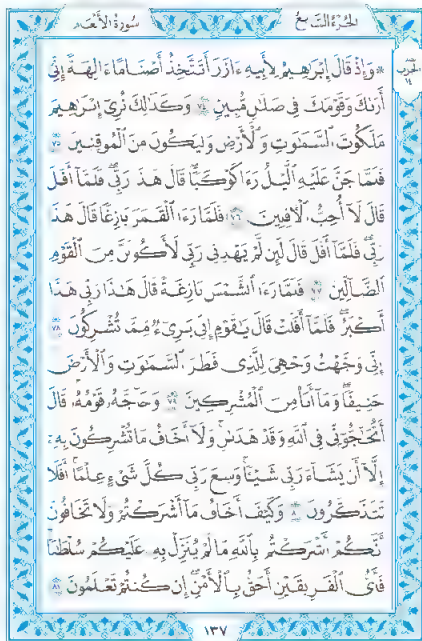 سُورَةُ الأَنْعَام
الجُزْءُ السَّابِعُ
وَإِذْ قَالَ إِبْرَٰهِيمُ لِأَبِيهِ ءَازَرَ أَتَتَّخِذُ أَصْنَامًا ءَالِهَةً إِنِّىٓ
أَرَىٰكَ وَقَوْمَكَ فِى ضَلَٰلٍ مُّبِينٍ ٧٤ وَكَذَٰلِكَ نُرِىٓ إِبْرَٰهِيمَ
مَلَكُوتَ ٱلسَّمَٰوَٰتِ وَٱلْأَرْضِ وَلِيَكُونَ مِنَ ٱلْمُوقِنِينَ ٧٥
فَلَمَّا جَنَّ عَلَيْهِ ٱلَّيْلُ رَءَا كَوْكَبًا قَالَ هَٰذَا رَبِّى فَلَمَّآ أَفَلَ
قَالَ لَآ أُحِبُّ ٱلْءَافِلِينَ ٧٦ فَلَمَّا رَءَا ٱلْقَمَرَ بَازِغًا قَالَ هَٰذَا
رَبِّى فَلَمَّآ أَفَلَ قَالَ لَئِن لَّمْ يَهْدِنِى رَبِّى لَأَكُونَنَّ مِنَ ٱلْقَوْمِ
ٱلضَّآلِّينَ ٧٧ فَلَمَّا رَءَا ٱلشَّمْسَ بَازِغَةً قَالَ هَٰذَا رَبِّى هَٰذَآ
أَكْبَرُ فَلَمَّآ أَفَلَتْ قَالَ يَٰقَوْمِ إِنِّى بَرِىٓءٌ مِّمَّا تُشْرِكُونَ ٧٨
إِنِّى وَجَّهْتُ وَجْهِىَ لِلَّذِى فَطَرَ ٱلسَّمَٰوَٰتِ وَٱلْأَرْضَ
حَنِيفًا وَمَآ أَنَا۠ مِنَ ٱلْمُشْرِكِينَ ٧٩ وَحَآجَّهُۥ قَوْمُهُۥ قَالَ
أَتُحَٰٓجُّوٓنِّى فِى ٱللَّهِ وَقَدْ هَدَىٰنِ وَلَآ أَخَافُ مَا تُشْرِكُونَ بِهِۦٓ
إِلَّآ أَن يَشَآءَ رَبِّى شَيْـًٔا وَسِعَ رَبِّى كُلَّ شَىْءٍ عِلْمًا أَفَلَا
تَتَذَكَّرُونَ ٨٠ وَكَيْفَ أَخَافُ مَآ أَشْرَكْتُمْ وَلَا تَخَافُونَ
أَنَّكُمْ أَشْرَكْتُم بِٱللَّهِ مَا لَمْ يُنَزِّلْ بِهِۦ عَلَيْكُمْ سُلْطَٰنًا
فَأَىُّ ٱلْفَرِيقَيْنِ أَحَقُّ بِٱلْأَمْنِ إِن كُنتُمْ تَعْلَمُونَ ٨١
١٣٧